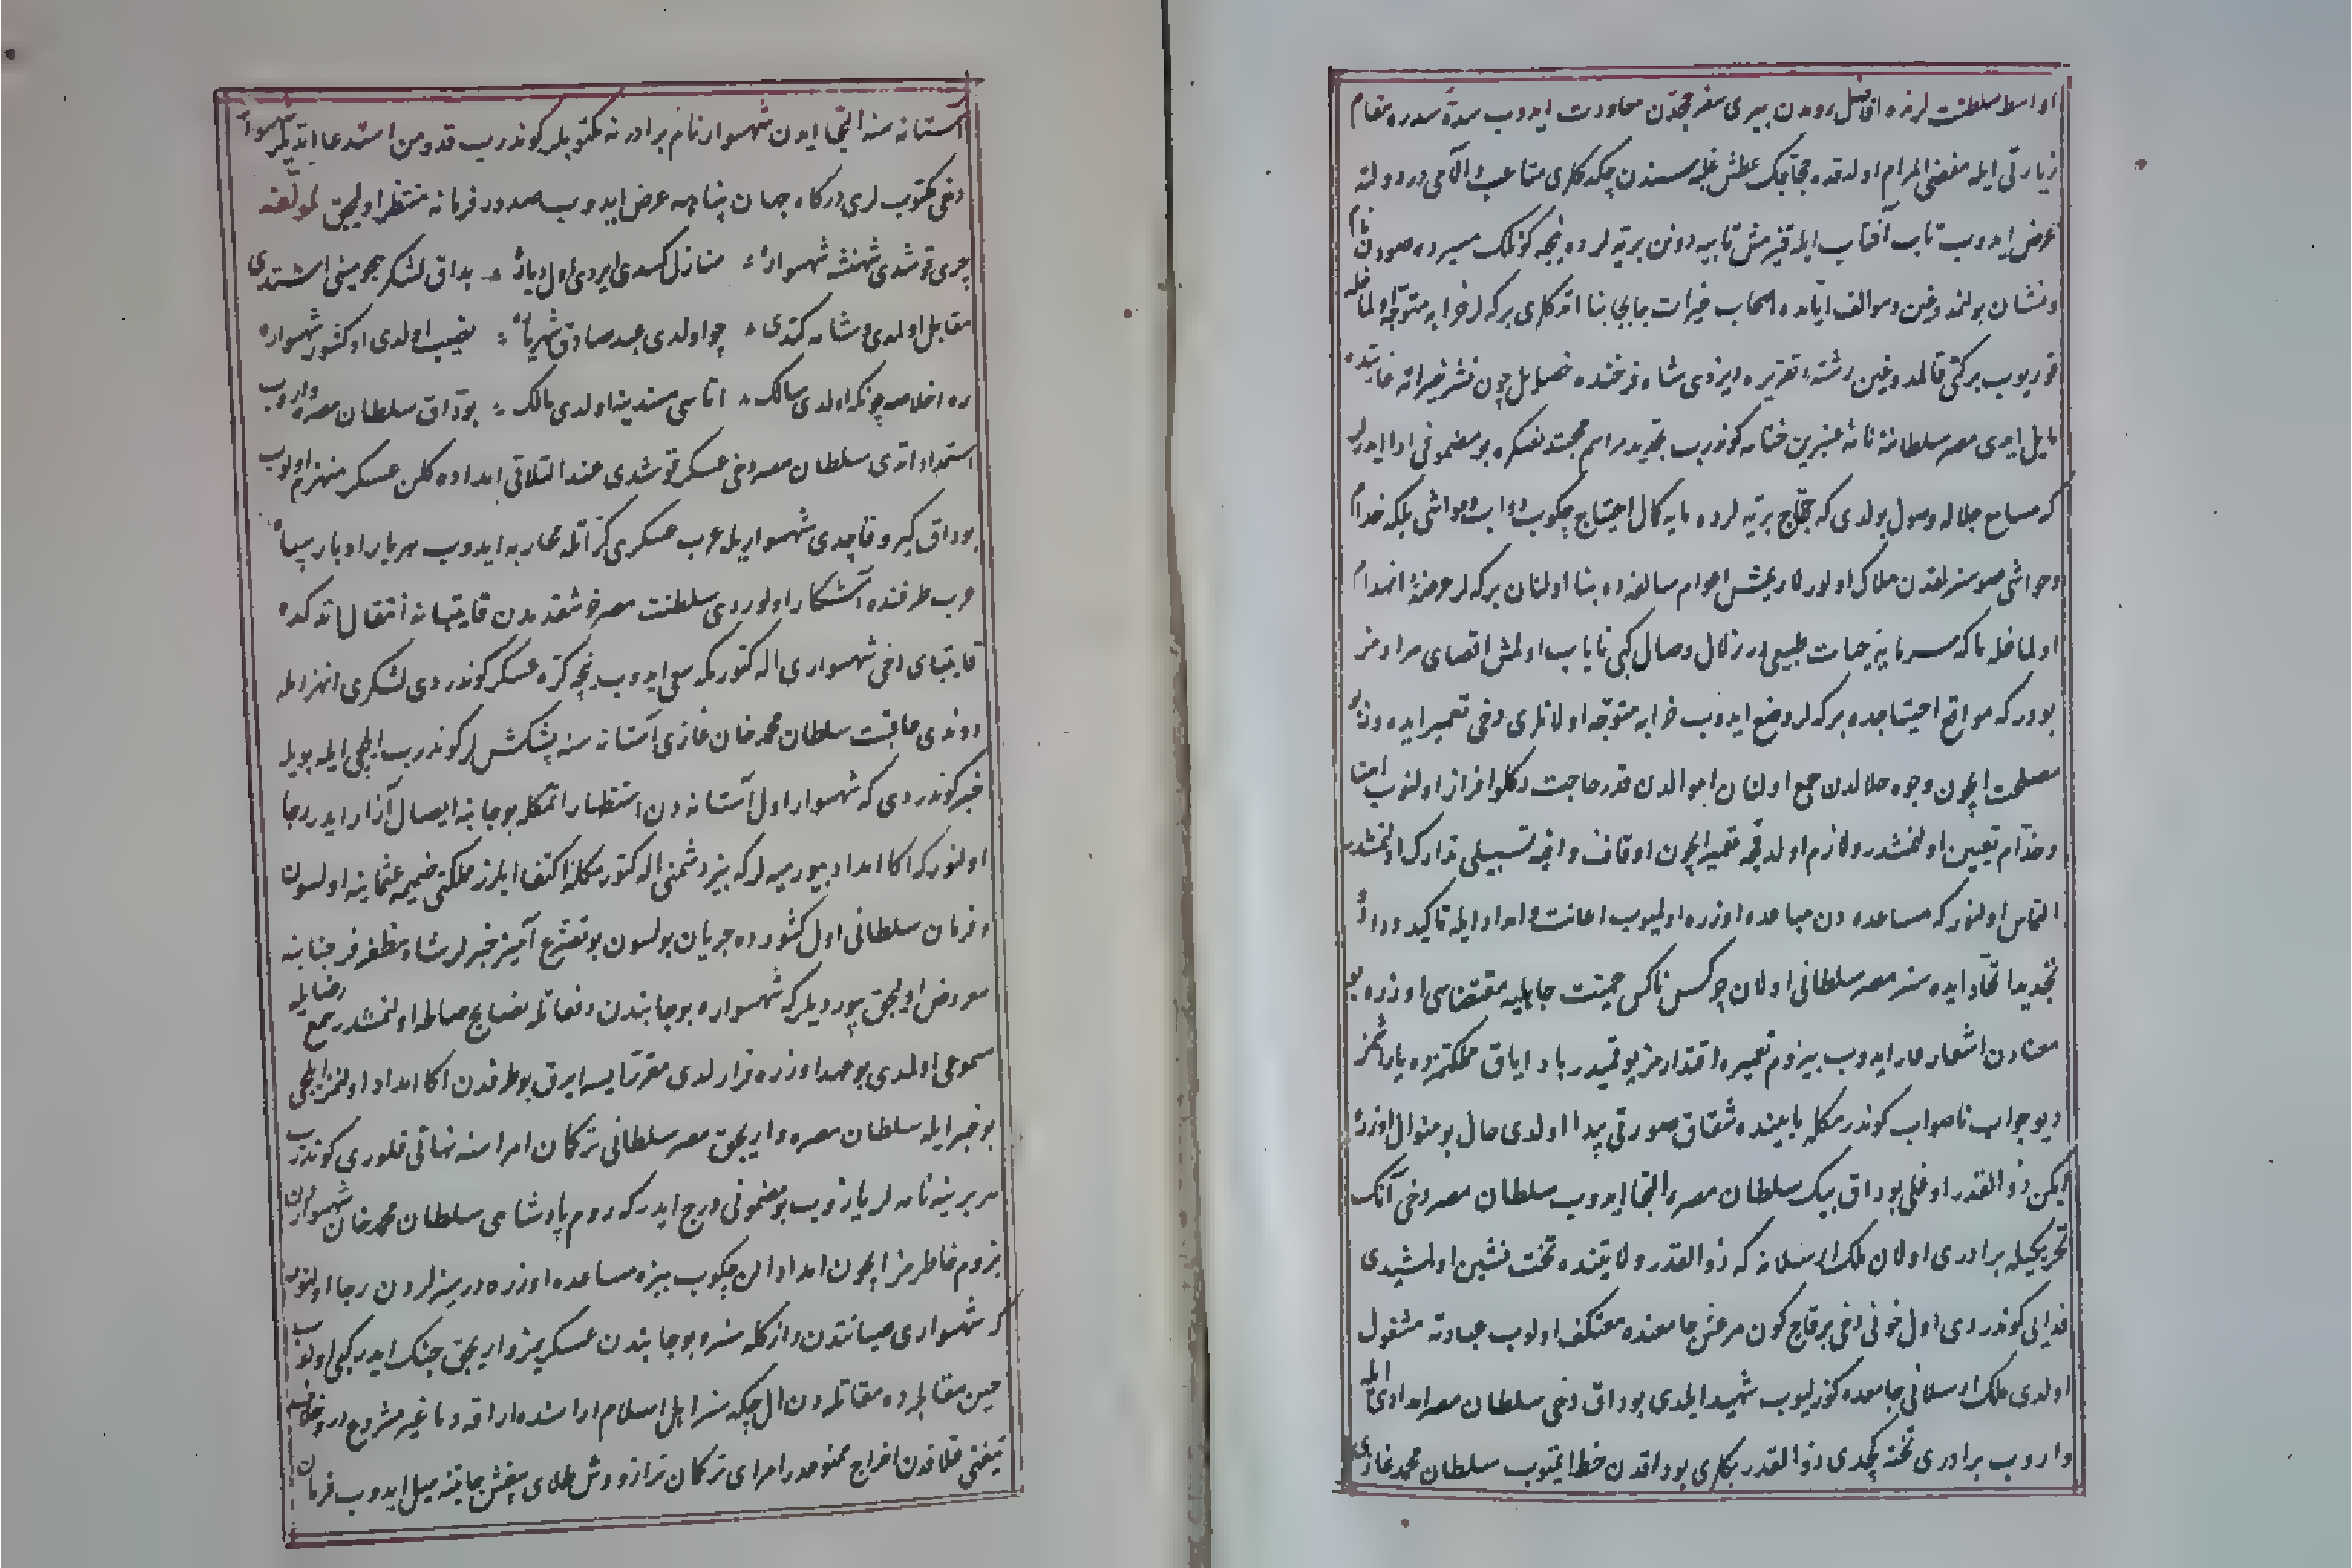 اواسط سلطنت لرنده افاضل رومدن بیری سفر حجدن معاودت ایدوب سدهٔ سدره مقام
زیارتی ایله مقضی المرام اولدقده حجاجک عطش غلبه سندن چکدکلری متاعب و آلامی در دولته
عرض ایدوب تاب آفتاب ایله قیزمش تابیه دونن بریه لرده نیجه کونلک مسیرده صودن نام
ونشان بولنمدوغین وسوالف ایامده اصحاب خیرات جابجا بنا اتدکلری برکه لر خرابه متوجه اولماغله
قوریوب برکتی قالمدوغین رشتهٔ تقریره دیزدی شاه فرخنده خصایل چون نشر خیراته غایتده
مایل ایدی مصر سلطاننه نامهٔ عنبرین ختامه کوندرب تجدید مراسم محبتدنصکره بو مضمونی ادا ایدرلر
که مسامع جلاله وصول بولدی که حجاج بریه لرده مایه کمال احتیاج چکوب دواب ومواشی بلکه خدام
وحواشی صوسزلقدن هلاک اولورلار یمش اعوام سالفه ده بنا اولنان برکه لر عرضهٔ انهدام
اولماغله ماکه سرمایهٔ حیات طبیعی در زلال وصال کبی نایاب اولمش اقصای مرادمز
بودرکه مواقع احتیاجده برکه لر وضع ایدوب خرابه متوجه اولانلری دخی تعمیر ایده وز بو
مصلحت ایچون وجوه حلالدن جمع اولنان اموالدن قدر حاجت دکلو افراز اولنوب امنا
وخدام تعیین اولنمشدر ولازم اولدقجه تعمیر ایچون اوقاف واقچه تسبیلی تدارک اولنمشدر
التماس اولنورکه مساعده دن مباعده اوزره اولمیوب اعانت وامداد ایله تاکید وداد
تجدید اتحاد ایده سز مصر سلطانی اولان چرکس ناکس حمیت جاهلیه مقتضاسی اوزره بو
معنادن اشعار عار ایدوب بیزوم تعمیره اقتدارمز یوقمیدر یاد ایاق مملکتمزده یاراشمز
دیو جواب ناصواب کوندرمکله مابینده شقاق صورتی پیدا اولدی حال بو منوال اوزره
ایکن ذوالقدر اوغلی بوداق بیک سلطان مصره التجا ایدوب سلطان مصر دخی آنک
تحریکیله برادری اولان ملک ارسلانه که ذوالقدر ولایتنده تخت نشین اولمشیدی
فدایی کوندردی اول خونی دخی برقاچ کون مرعش جامعنده معتکف اولوب عبادته مشغول
اولدی ملک ارسلانی جامعده کوزلیوب شهید ایلدی بوداق دخی سلطان مصر امدادی ایله
واروب برادری تختنه کچدی ذوالقدر بکلری بوداقدن حظ ایتمیوب سلطان محمد غازی
آستانه سنه التجا ایدن شهسوار نام برادرنه مکتوبلر کوندرب قدومن استدعا ایتدیلر شهسوار
دخی مکتوب لری درکاه جهان پناهه عرض ایدوب صدور فرمانه منتظر اولیجق لمؤلفه
چری قوشدی شهنشه شهسواره منازل کسدی ایردی اول دیاره بداق لشکر هجومینی اشتدی
مقابل اولمدی وشامه کتدی چو اولدی عبد صادق شهریاره نصیب اولدی او کشور شهسواره
ره اخلاصه چونکه اولدی سالک اتاسی مسندینه اولدی مالک بوداق سلطان مصره واروب
استمداد اتدی سلطان مصر دخی عسکر قوشدی عند التلاقی امداده کلن عسکر منهزم اولوب
بوداق کیرو قاچدی شهسوار یله عرب عسکری کراتله محاربه ایدوب هر بار ادبار سپاه
عرب طرفنده آشکار اولوردی سلطنت مصر خوشقدمدن قایتبایه انتقال اتدکده
قایتبای دخی شهسواری اله کتورمکه سعی ایدوب نیجه کره عسکر کوندردی لشکری انهزامله
دوندی عاقبت سلطان محمد خان غازی آستانه سنه پیشکش لر کوندرب ایلچی ایله بویله
خبر کوندردی که شهسوار اول آستانه دن استظهار اتمکله بو جانبه ایصال آزار ایدر رجا
اولنورکه اکا امداد بیورمیه لر که بیز دشمنی اله کتورمکله اکتفا ایلرز مملکتی ضمیمه عثمانیه اولسون
وفرمان سلطانی اول کشورده جریان بولسون بو تضرع آمیز خبرلر شاه مظفر فر جنابنه
معروض اولیجق بیوردیلر که شهسواره بو جانبدن دفعاتله نصایح صالحه اولنمشدر سمع رضایله
مسموعی اولمدی بو عهد اوزره قرار لدی مقررایسه ایرق بو طرفدن اکا امداد اولنمز ایلچی
بو خبر ایله سلطان مصره واریجق مصر سلطانی ترکمان امراسنه نهانی فلوری کوندرب
هر برینه نامه لر یازوب بو مضمونی درج ایدر که روم پادشاهی سلطان محمد خان شهسواردن
بزوم خاطرمز ایچون امداد الن چکوب بیزه مساعده اوزره در سزلردن رجا اولنور
که شهسواری صیانتدن وازکله سز و بو جانبدن عسکریمز واریجق جنک ایدر کبی اولوب
حین مقابله ده مقاتله دن ال چکه سز اهل اسلام اراسنده اراقهٔ دما غیر مشروع در
تیغنی غلافدن اخراج ممنوعدر امرای ترکمان ترازو وش طلای بیغش جانبنه میل ایدوب فرمان